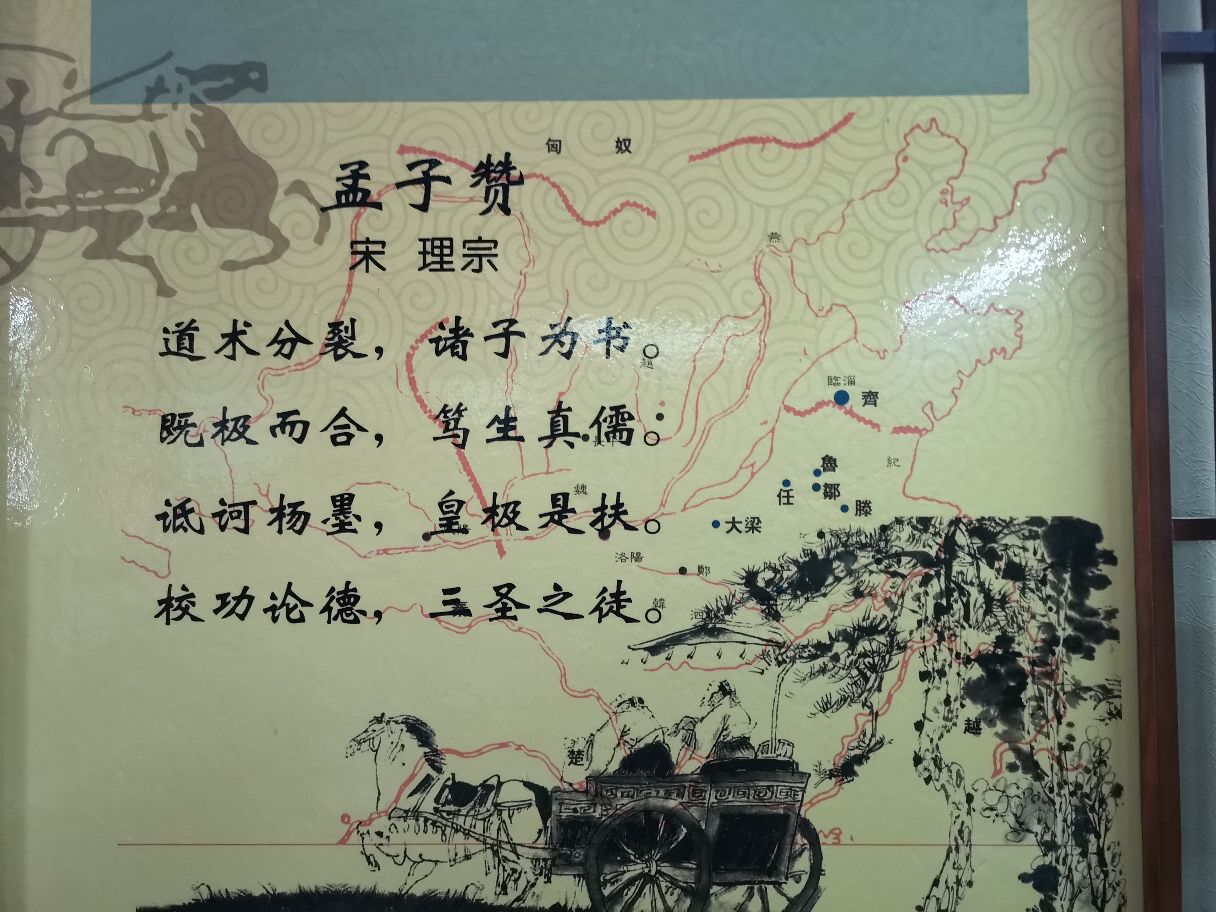 匈奴
孟子赞
宋 理宗
燕
道术分裂，诸子为书。
趙
臨淄
齊
既极而合，笃生真儒。
紀
魯
鄒
任
魏
滕
诋诃杨墨，皇极是扶。
大梁
洛陽
鄭
校功论德，三圣之徒。
韓
泗
越
楚